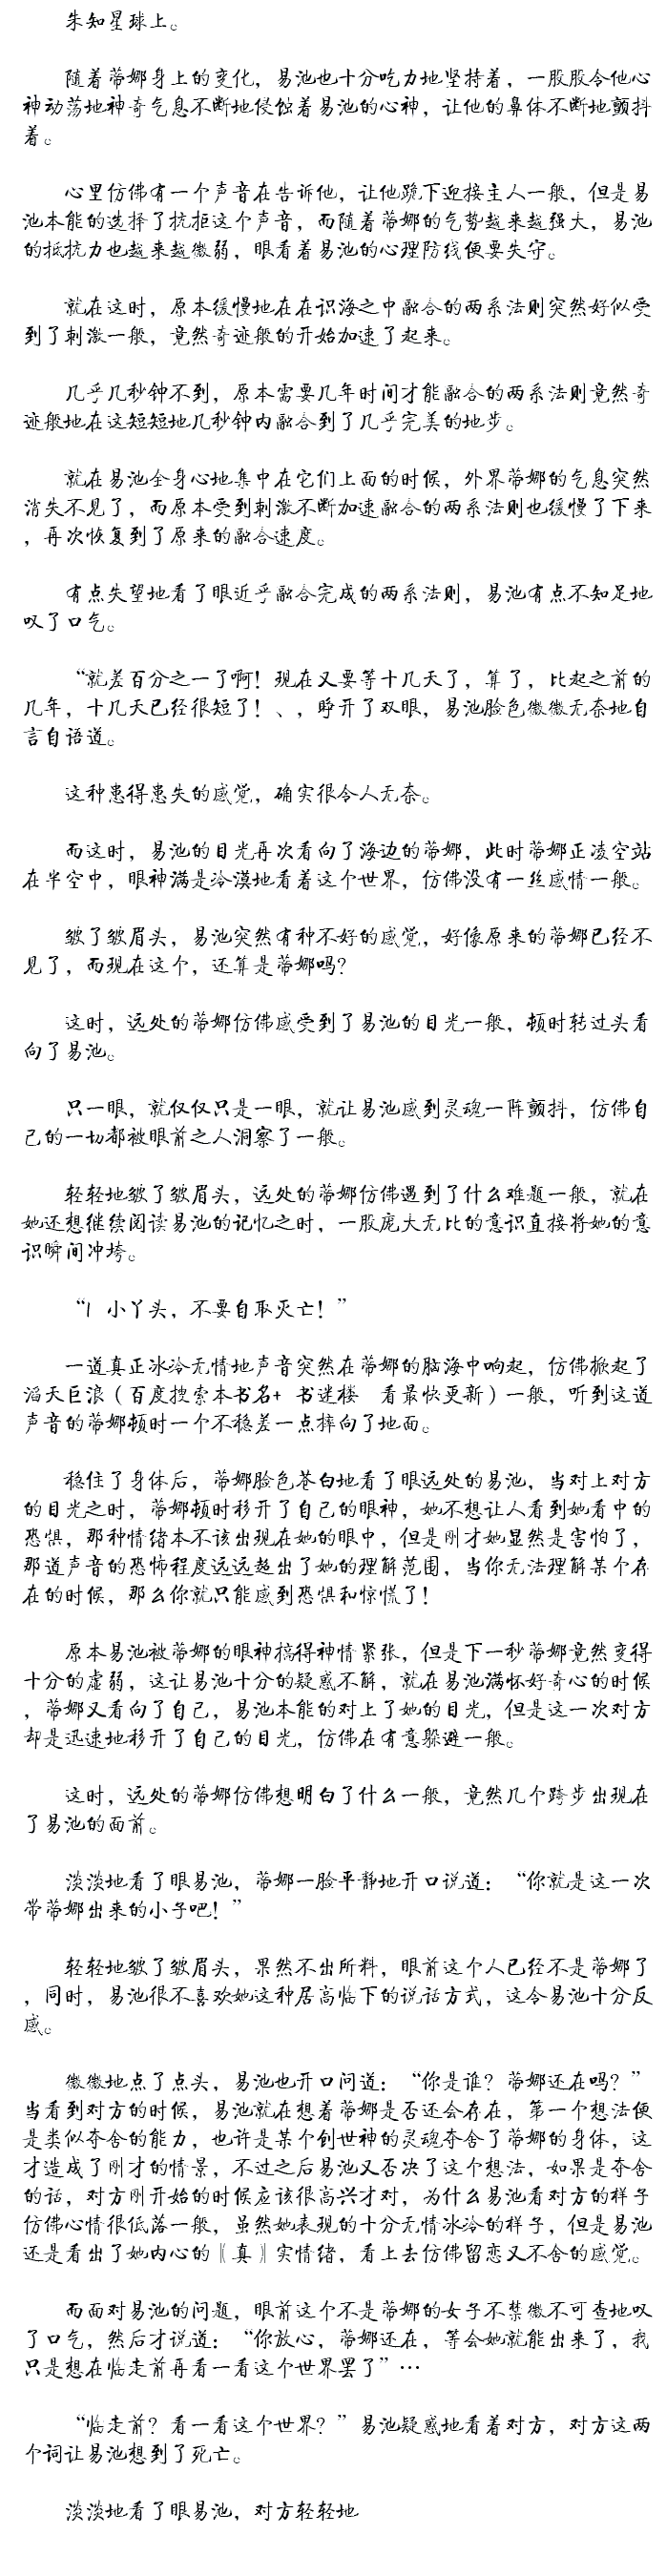 朱知星球上。
随着蒂娜身上的变化，易池也十分吃力地坚持着，一股股令他心
神动荡地神奇气息不断地侵蚀着易池的心神，让他的鼻体不断地颤抖
着。
心里仿佛有一个声音在告诉他，让他跪下迎接主人一般，但是易
池本能的选择了抗拒这个声音，而随着蒂娜的气势越来越强大，易池
的抵抗力也越来越微弱，眼看着易池的心理防线便要失守。
就在这时，原本缓慢地在在识海之中融合的两系法则突然好似受
到了刺激一般，竟然奇迹般的开始加速了起来。
几乎几秒钟不到，原本需要几年时间才能融合的两系法则竟然奇
迹般地在这短短地几秒钟内融合到了几乎完美的地步。
就在易池全身心地集中在它们上面的时候，外界蒂娜的气息突然
消失不见了，而原本受到刺激不断加速融合的两系法则也缓慢了下来
，再次恢复到了原来的融合速度。
有点失望地看了眼近乎融合完成的两系法则，易池有点不知足地
叹了口气。
“就差百分之一了啊！现在又要等十几天了，算了，比起之前的
几年，十几天已经很短了！、，睁开了双眼，易池脸色微微无奈地自
言自语道。
这种患得患失的感觉，确实很令人无奈。
而这时，易池的目光再次看向了海边的蒂娜，此时蒂娜正凌空站
在半空中，眼神满是冷漠地看着这个世界，仿佛没有一丝感情一般。
皱了皱眉头，易池突然有种不好的感觉，好像原来的蒂娜已经不
见了，而现在这个，还算是蒂娜吗？
这时，远处的蒂娜仿佛感受到了易池的目光一般，顿时转过头看
向了易池。
只一眼，就仅仅只是一眼，就让易池感到灵魂一阵颤抖，仿佛自
己的一切都被眼前之人洞察了一般。
轻轻地皱了皱眉头，远处的蒂娜仿佛遇到了什么难题一般，就在
她还想继续阅读易池的记忆之时，一股庞大无比的意识直接将她的意
识瞬间冲垮。
“l 小丫头，不要自取灭亡！”
一道真正冰冷无情地声音突然在蒂娜的脑海中响起，仿佛掀起了
滔天巨浪（百度搜索本书名+ 书迷楼 看最快更新）一般，听到这道
声音的蒂娜顿时一个不稳差一点摔向了地面。
稳住了身体后，蒂娜脸色苍白地看了眼远处的易池，当对上对方
的目光之时，蒂娜顿时移开了自己的眼神，她不想让人看到她看中的
恐惧，那种情绪本不该出现在她的眼中，但是刚才她显然是害怕了，
那道声音的恐怖程度远远超出了她的理解范围，当你无法理解某个存
在的时候，那么你就只能感到恐惧和惊慌了！
原本易池被蒂娜的眼神搞得神情紧张，但是下一秒蒂娜竟然变得
十分的虚弱，这让易池十分的疑惑不解，就在易池满怀好奇心的时候
，蒂娜又看向了自己，易池本能的对上了她的目光，但是这一次对方
却是迅速地移开了自己的目光，仿佛在有意躲避一般。
这时，远处的蒂娜仿佛想明白了什么一般，竟然几个跨步出现在
了易池的面前。
淡淡地看了眼易池，蒂娜一脸平静地开口说道：“你就是这一次
带蒂娜出来的小子吧！”
轻轻地皱了皱眉头，果然不出所料，眼前这个人已经不是蒂娜了
，同时，易池很不喜欢她这种居高临下的说话方式，这令易池十分反
感。
微微地点了点头，易池也开口问道：“你是谁？蒂娜还在吗？”
当看到对方的时候，易池就在想着蒂娜是否还会存在，第一个想法便
是类似夺舍的能力，也许是某个创世神的灵魂夺舍了蒂娜的身体，这
才造成了刚才的情景，不过之后易池又否决了这个想法，如果是夺舍
的话，对方刚开始的时候应该很高兴才对，为什么易池看对方的样子
仿佛心情很低落一般，虽然她表现的十分无情冰冷的样子，但是易池
还是看出了她内心的〖真〗实情绪，看上去仿佛留恋又不舍的感觉。
而面对易池的问题，眼前这个不是蒂娜的女子不禁微不可查地叹
了口气，然后才说道：“你放心，蒂娜还在，等会她就能出来了，我
只是想在临走前再看一看这个世界罢了”…
“临走前？看一看这个世界？”易池疑惑地看着对方，对方这两
个词让易池想到了死亡。
淡淡地看了眼易池，对方轻轻地